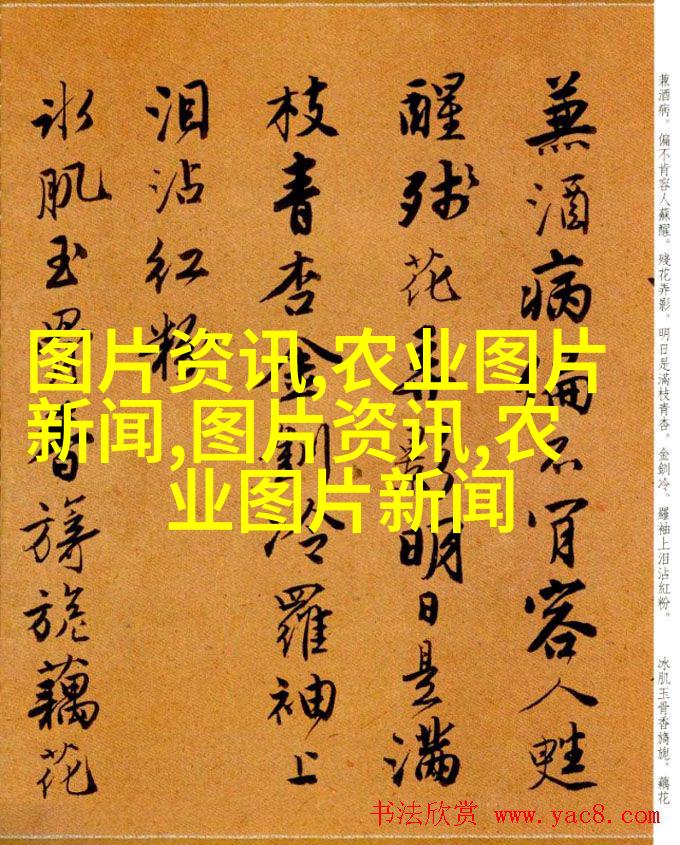 兼酒病。偏不肯容人蘇醒。殘花弄影。明日是滿枝青杏。金釧冷。羅袖上泪沾紅粉。 冰肌玉骨香旖旎。藕花
兼酒病偏不肯容人甦
醒殘花弄影明日是滿
枝青杏金釧冷羅袖上
泪沾紅粉
冰肌玉骨香旖旎藕花
图片资讯,农业图片
新闻,图片资讯,农
业图片新闻
书法欣赏 www.yac8.com